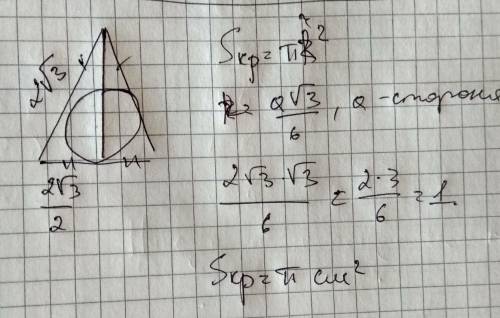 2√3
2√3/2
Sкр = π r²
r = a√3/6, a - сторона
2√3 · √3/6 = 2·3/6 = 1
Sкр = π см²